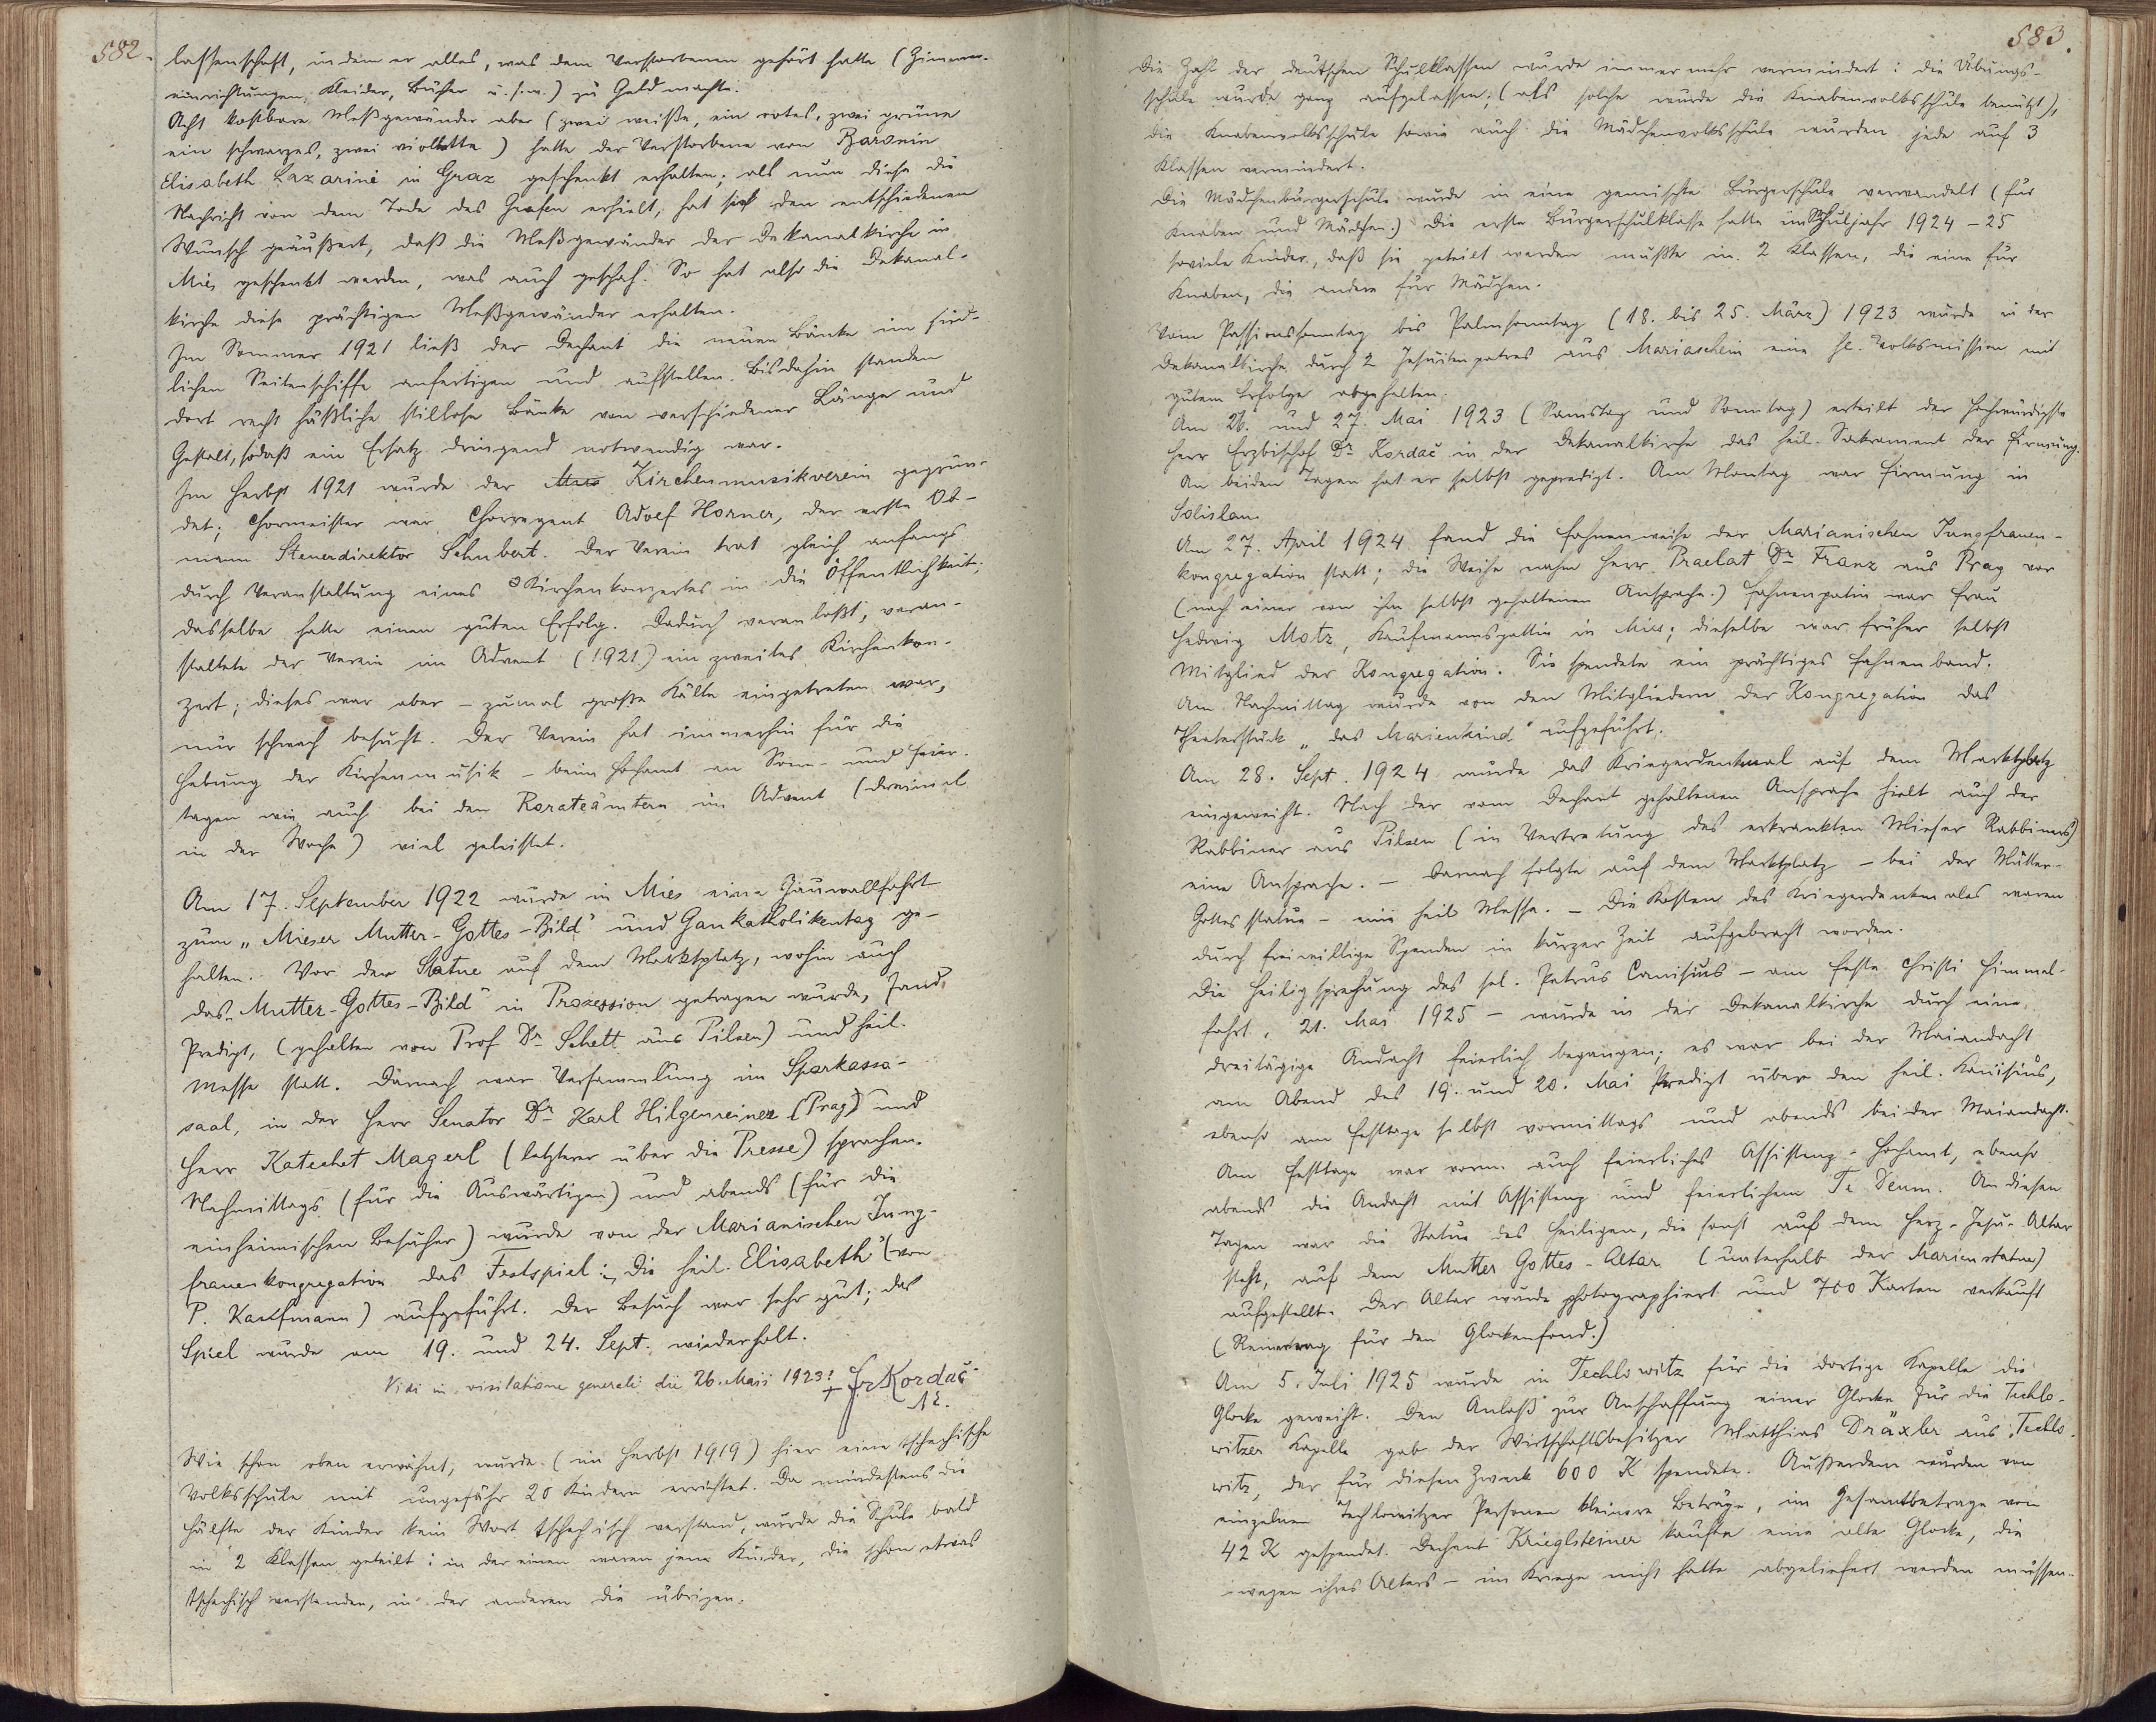 582.
lassenschaft, indem er alles, was dem Verstorbenen gehört hatte (Zimmer-
einrichtungen, Kleider, Bücher u. s. w.) zu Geld machte.
Acht kostbare Meßgewänder aber (zwei weiße, ein rotes, zwei grüne
ein schwarzes, zwei violette) hatte der Verstorbene von Baronin
Elisabeth Lazarini in Graz geschenkt erhalten; als nun diese die
Nachricht von dem Tode des Grafen erhielt, hat sie den entschiedenen
Wunsch geäußert, daß die Meßgewänder der Dekanalkirche in
Mies geschenkt werden, was auch geschah. So hat also die Dekanal-
kirche diese prächtigen Meßgewänder erhalten.
Im Sommer 1921 ließ der Dechant die neuen Bänke im süd-
lichen Seitenschiffe anfertigen und aufstellen. Bisdahin standen
dort recht häßliche stillose Bänke von verschiedener Länge und
Gestalt, sodaß ein Ersatz dringend notwendig war.
Im Herbst 1921 wurde der Mus Kirchenmusikverein gegrün-
det; Chormeister war Chorregent Adolf Horner, der erste Ob-
mann Steuerdirektor Schubert. Der Verein trat gleich anfangs
durch Veranstaltung eines Kirchenkonzertes in die Öffentlichkeit;
dasselbe hatte einen guten Erfolg. Dadurch veranlaßt, veran-
staltete der Verein im Advent (1921) ein zweites Kirchenkon-
zert; dieses war aber – zumal große Kälte eingetreten war,
nur schwach besucht. Der Verein hat immerhin für die
Hebung der Kirchenmusik – beim Hochamt an Sonn- und Feier-
tagen wie auch bei den Rorateämtern im Advent (dreimal
in der Woche) viel geleistet.
Am 17. September 1922 wurde in Mies eine Gauwallfahrt
zum „Mieser Mutter-Gottes-Bild" und Gaukatholikentag ge-
halten. Vor der Statue auf dem Marktplatz, wohin auch
das „Mutter-Gottes-Bild" in Prozession getragen wurde, fand
Predigt, (gehalten von Prof Dr Schett aus Pilsen) und heil.
Messe statt. Darnach war Versammlung im Sparkassa-
saal, in der Herr Senator Dr Karl Hilgenreiner (Prag) und
Herr Katechet Magerl (letzterer über die Presse) sprachen.
Nachmittags (für die Auswärtigen) und abends (für die
einheimischen Besucher) wurde von der Marianischen Jung-
frauenkongregation das Festspiel: „Die heil. Elisabeth" (von
P. Kaufmann) aufgeführt. Der Besuch war sehr gut; das
Spiel wurde am 19. und 24. Sept. wiederholt.
Vidi in visitatione generali die 26. Maii 1923!
+ Fr Kordač
AE.
Wie schon oben erwähnt, wurde (im Herbst 1919) hier eine tschechische
Volksschule mit ungefähr 20 Kindern errichtet. Da mindestens die
Hälfte der Kinder kein Wort tschechisch verstand, wurde die Schule bald
in 2 Klassen geteilt: in der einen waren jene Kinder, die schon etwas
tschechisch verstanden, in der anderen die übrigen.
583.
Die Zahl der deutschen Schulklassen wurde immer mehr vermindert: die Übungs-
schule wurde ganz aufgelassen; (als solche wurde die Knabenvolksschule benützt),
die Knabenvolksschule sowie auch die Mädchenvolksschule wurden jede auf 3
Klassen vermindert.
Die Mädchenbürgerschule wurde in eine gemischte Bürgerschule verwandelt (für
Knaben und Mädchen.) Die erste Bürgerschulklasse hatte im Schuljahr 1924 – 25
soviele Kinder, daß sie geteilt werden mußte in 2 Klassen, die eine für
Knaben, die andere für Mädchen.
Vom Passionssonntag bis Palmsonntag (18. bis 25. März) 1923 wurde in der
Dekanalkirche durch 2 Jesuitenpatres aus Mariaschein eine hl. Volksmission mit
gutem Erfolge abgehalten.
Am 26. und 27. Mai 1923 (Samstag und Sonntag) erteilt der hochwürdigste
Herr Erzbischof Dr Kordač in der Dekanalkirche das heil. Sakrament der Firmung.
An beiden Tagen hat er selbst gepredigt. Am Montag war Firmung in
Solislau
Am 27. April 1924 fand die Fahnenweihe der Marianischen Jungfrauen-
kongregation statt; die Weihe nahm Herr Praelat Dr Franz aus Prag vor
(nach einer von ihm selbst gehaltenen Ansprache.) Fahnenpatin war Frau
Hedwig Motz, Kaufmannsgattin in Mies; dieselbe war früher selbst
Mitglied der Kongregation. Sie spendete ein prächtiges Fahnenband.
Am Nachmittag wurde von den Mitgliedern der Kongregation das
Theaterstück „das Marienkind" aufgeführt.
Am 28. Sept. 1924 wurde das Kriegerdenkmal auf dem Marktplatz
eingeweiht. Nach der vom Dechant gehaltenen Ansprache hielt auch der
Rabbiner aus Pilsen (in Vertretung des erkrankten Mieser Rabbiners)
eine Ansprache. – Darnach folgte auf dem Marktplatz – bei der Mutter-
Gottesstatue – eine heil Messe. – Die Kosten des Kriegerdenkmales waren
durch freiwillige Spenden in kurzer Zeit aufgebracht worden.
Die Heiligsprechung des sel. Petrus Canisius – am Feste Christi Himmel-
fahrt, 21. Mai 1925 – wurde in der Dekanalkirche durch eine
dreitägige Andacht feierlich begangen; es war bei der Maiandacht
am Abend des 19. und 20. Mai Predigt über den heil. Kanisius,
ebenso am Festtage selbst vormittags und abends bei der Maiandacht.
Am Festtage war vorm. auch feierliches Assistenz-Hochamt, ebenso
abends die Andacht mit Assistenz und feierlichem Te Deum. An diesen
Tagen war die Statue des Heiligen, die sonst auf dem Herz-Jesu-Altar
steht, auf dem Mutter Gottes-Altar (unterhalb der Marienstatue)
aufgestellt. Der Altar wurde photographiert und 700 Karten verkauft
(Reinertrag für den Glockenfond.)
Am 5. Juli 1925 wurde in Techlowitz für die dortige Kapelle die
Glocke geweiht. Den Anlaß zur Anschaffung einer Glocke für die Techlo-
witzer Kapelle gab der Wirtschaftsbesitzer Matthias Dräxler aus Techlo-
witz, der für diesen Zweck 600 K spendete. Außerdem wurden von
einzelnen Techlowitzer Personen kleinere Beträge, im Gesamtbetrage von
42 K gespendet. Dechant Krieglsteiner kaufte eine alte Glocke, die
– wegen ihres Alters – im Kriege nicht hatte abgeliefert werden müssen.